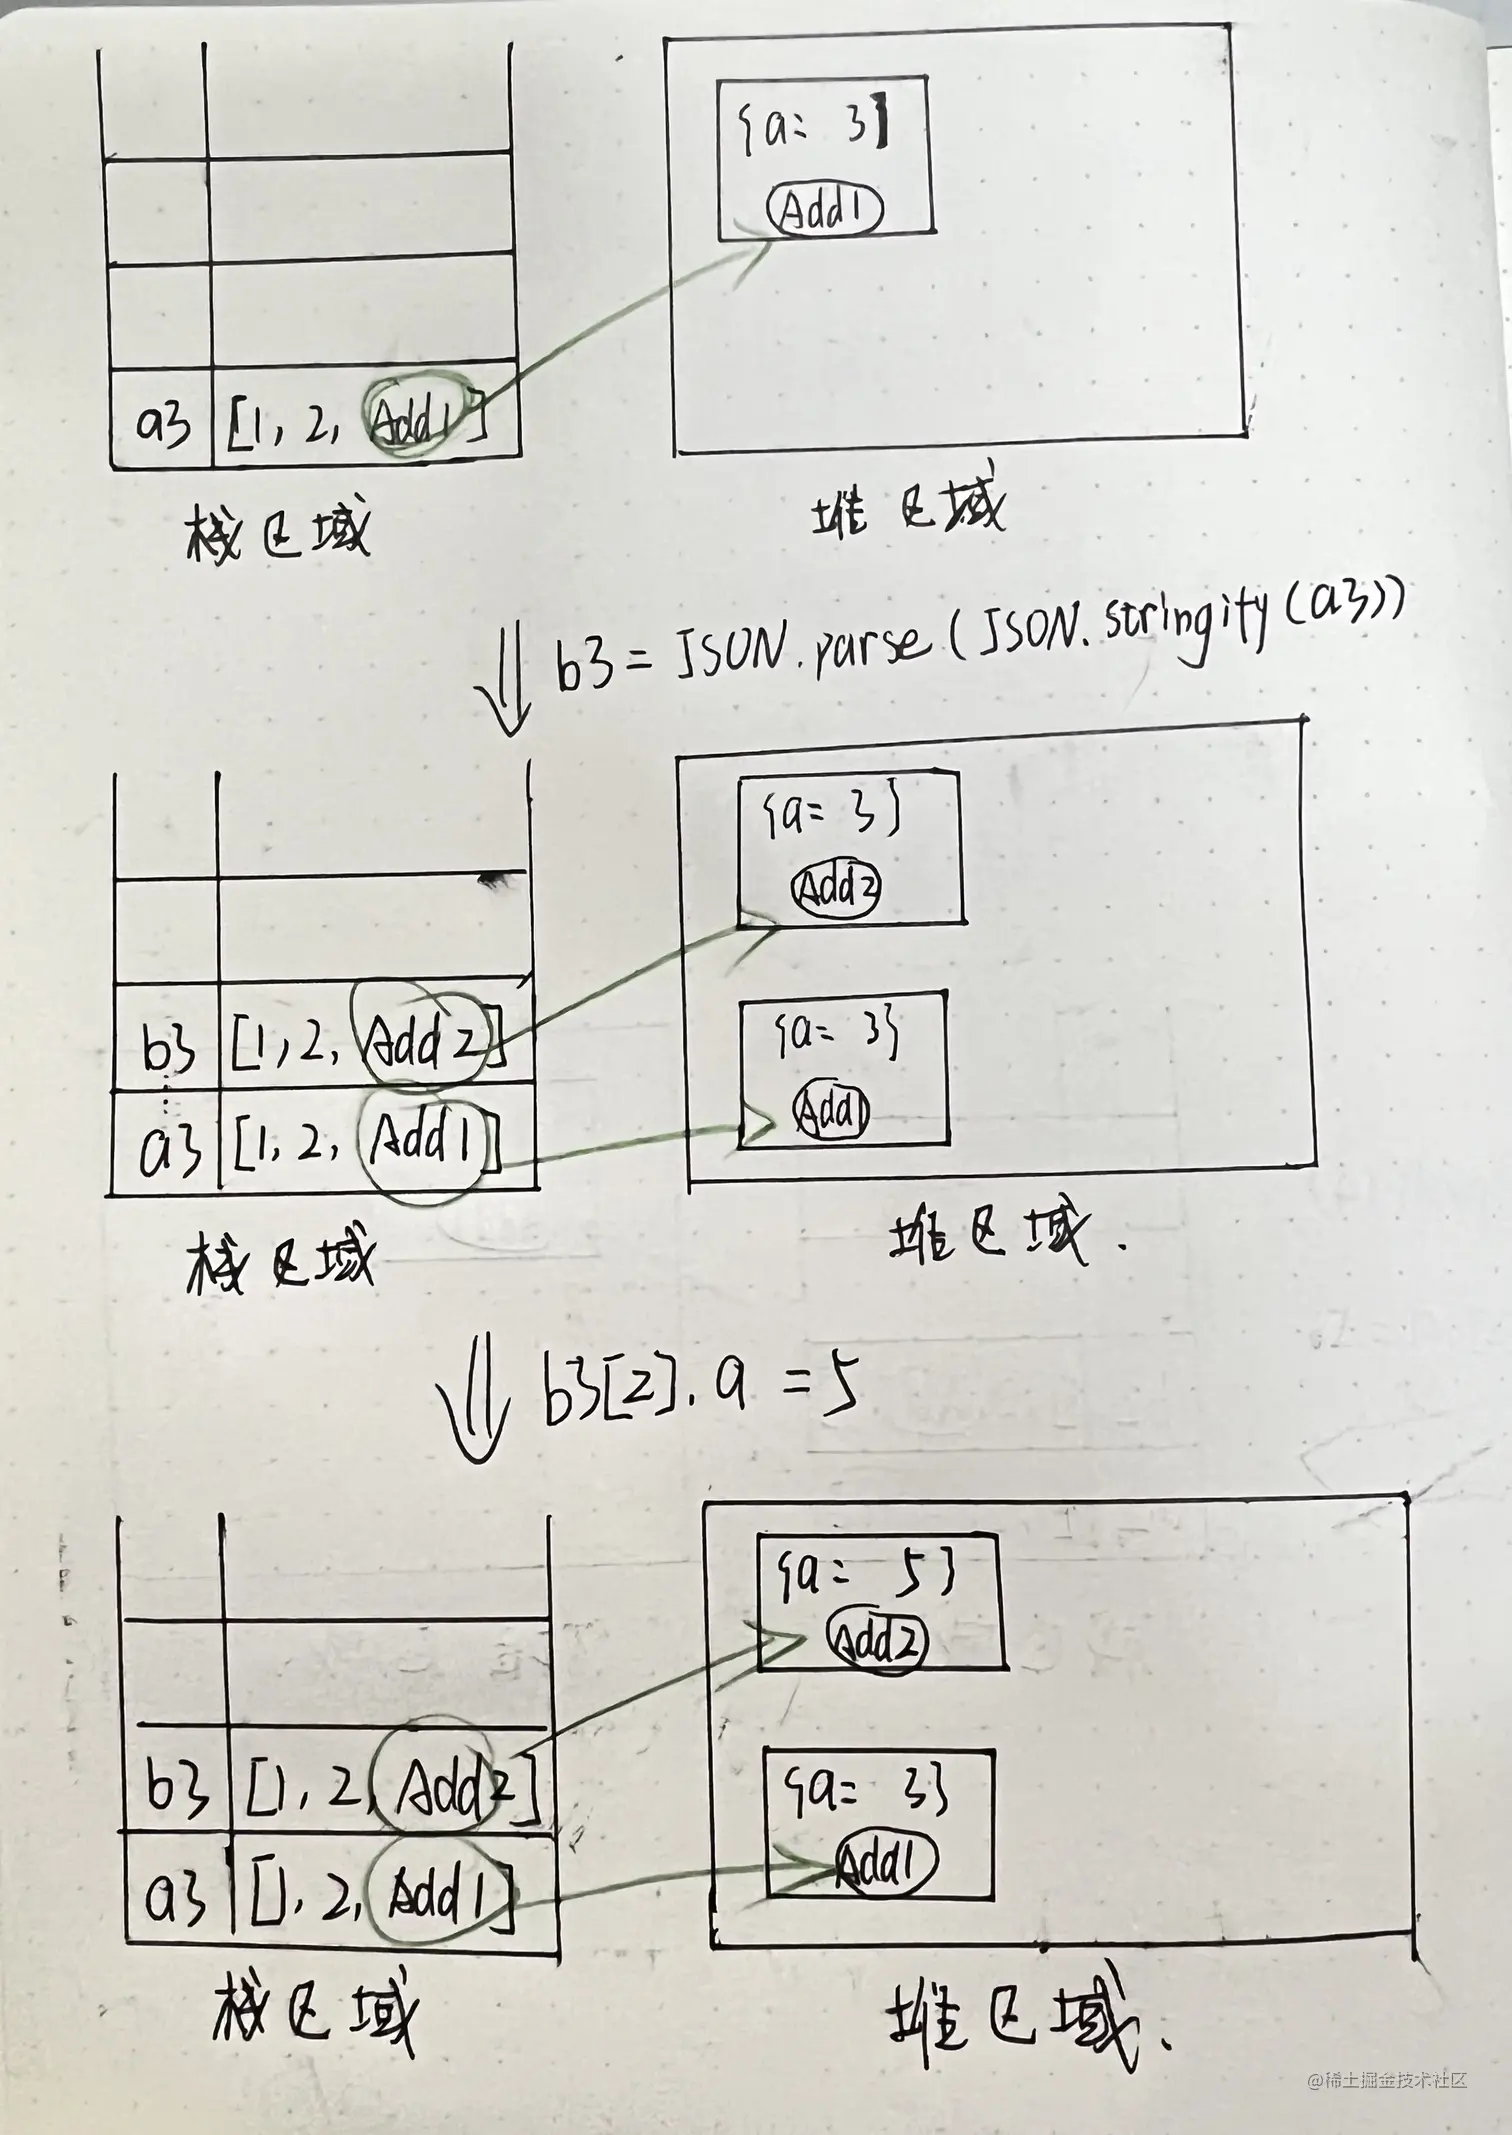 {a= 3}
Add1
a3 [1, 2, Add1]
栈区域
堆区域
b3 = JSON.parse(JSON.stringity(a3))
{a= 3}
Add2
b3 [1, 2, Add2]
{a= 3}
Add1
a3 [1, 2, Add1]
栈区域
堆区域.
b3[2].a = 5
{a= 5}
Add2
b3 [1, 2, Add2]
{a= 3}
Add1
a3 [1, 2, Add1]
栈区域
堆区域.
@稀土掘金技术社区